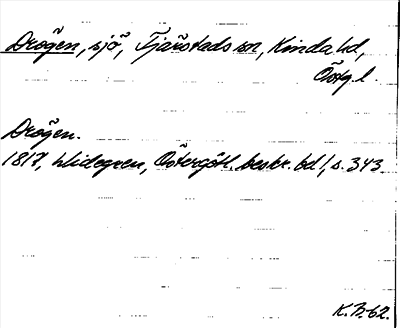 Drögen, sjö, Tjärstads sn, Kinda hd,
Östg.l.
Drögen.
1817, Widegren, Östergötl. beskr. bd 1, s. 343
K.B-62.